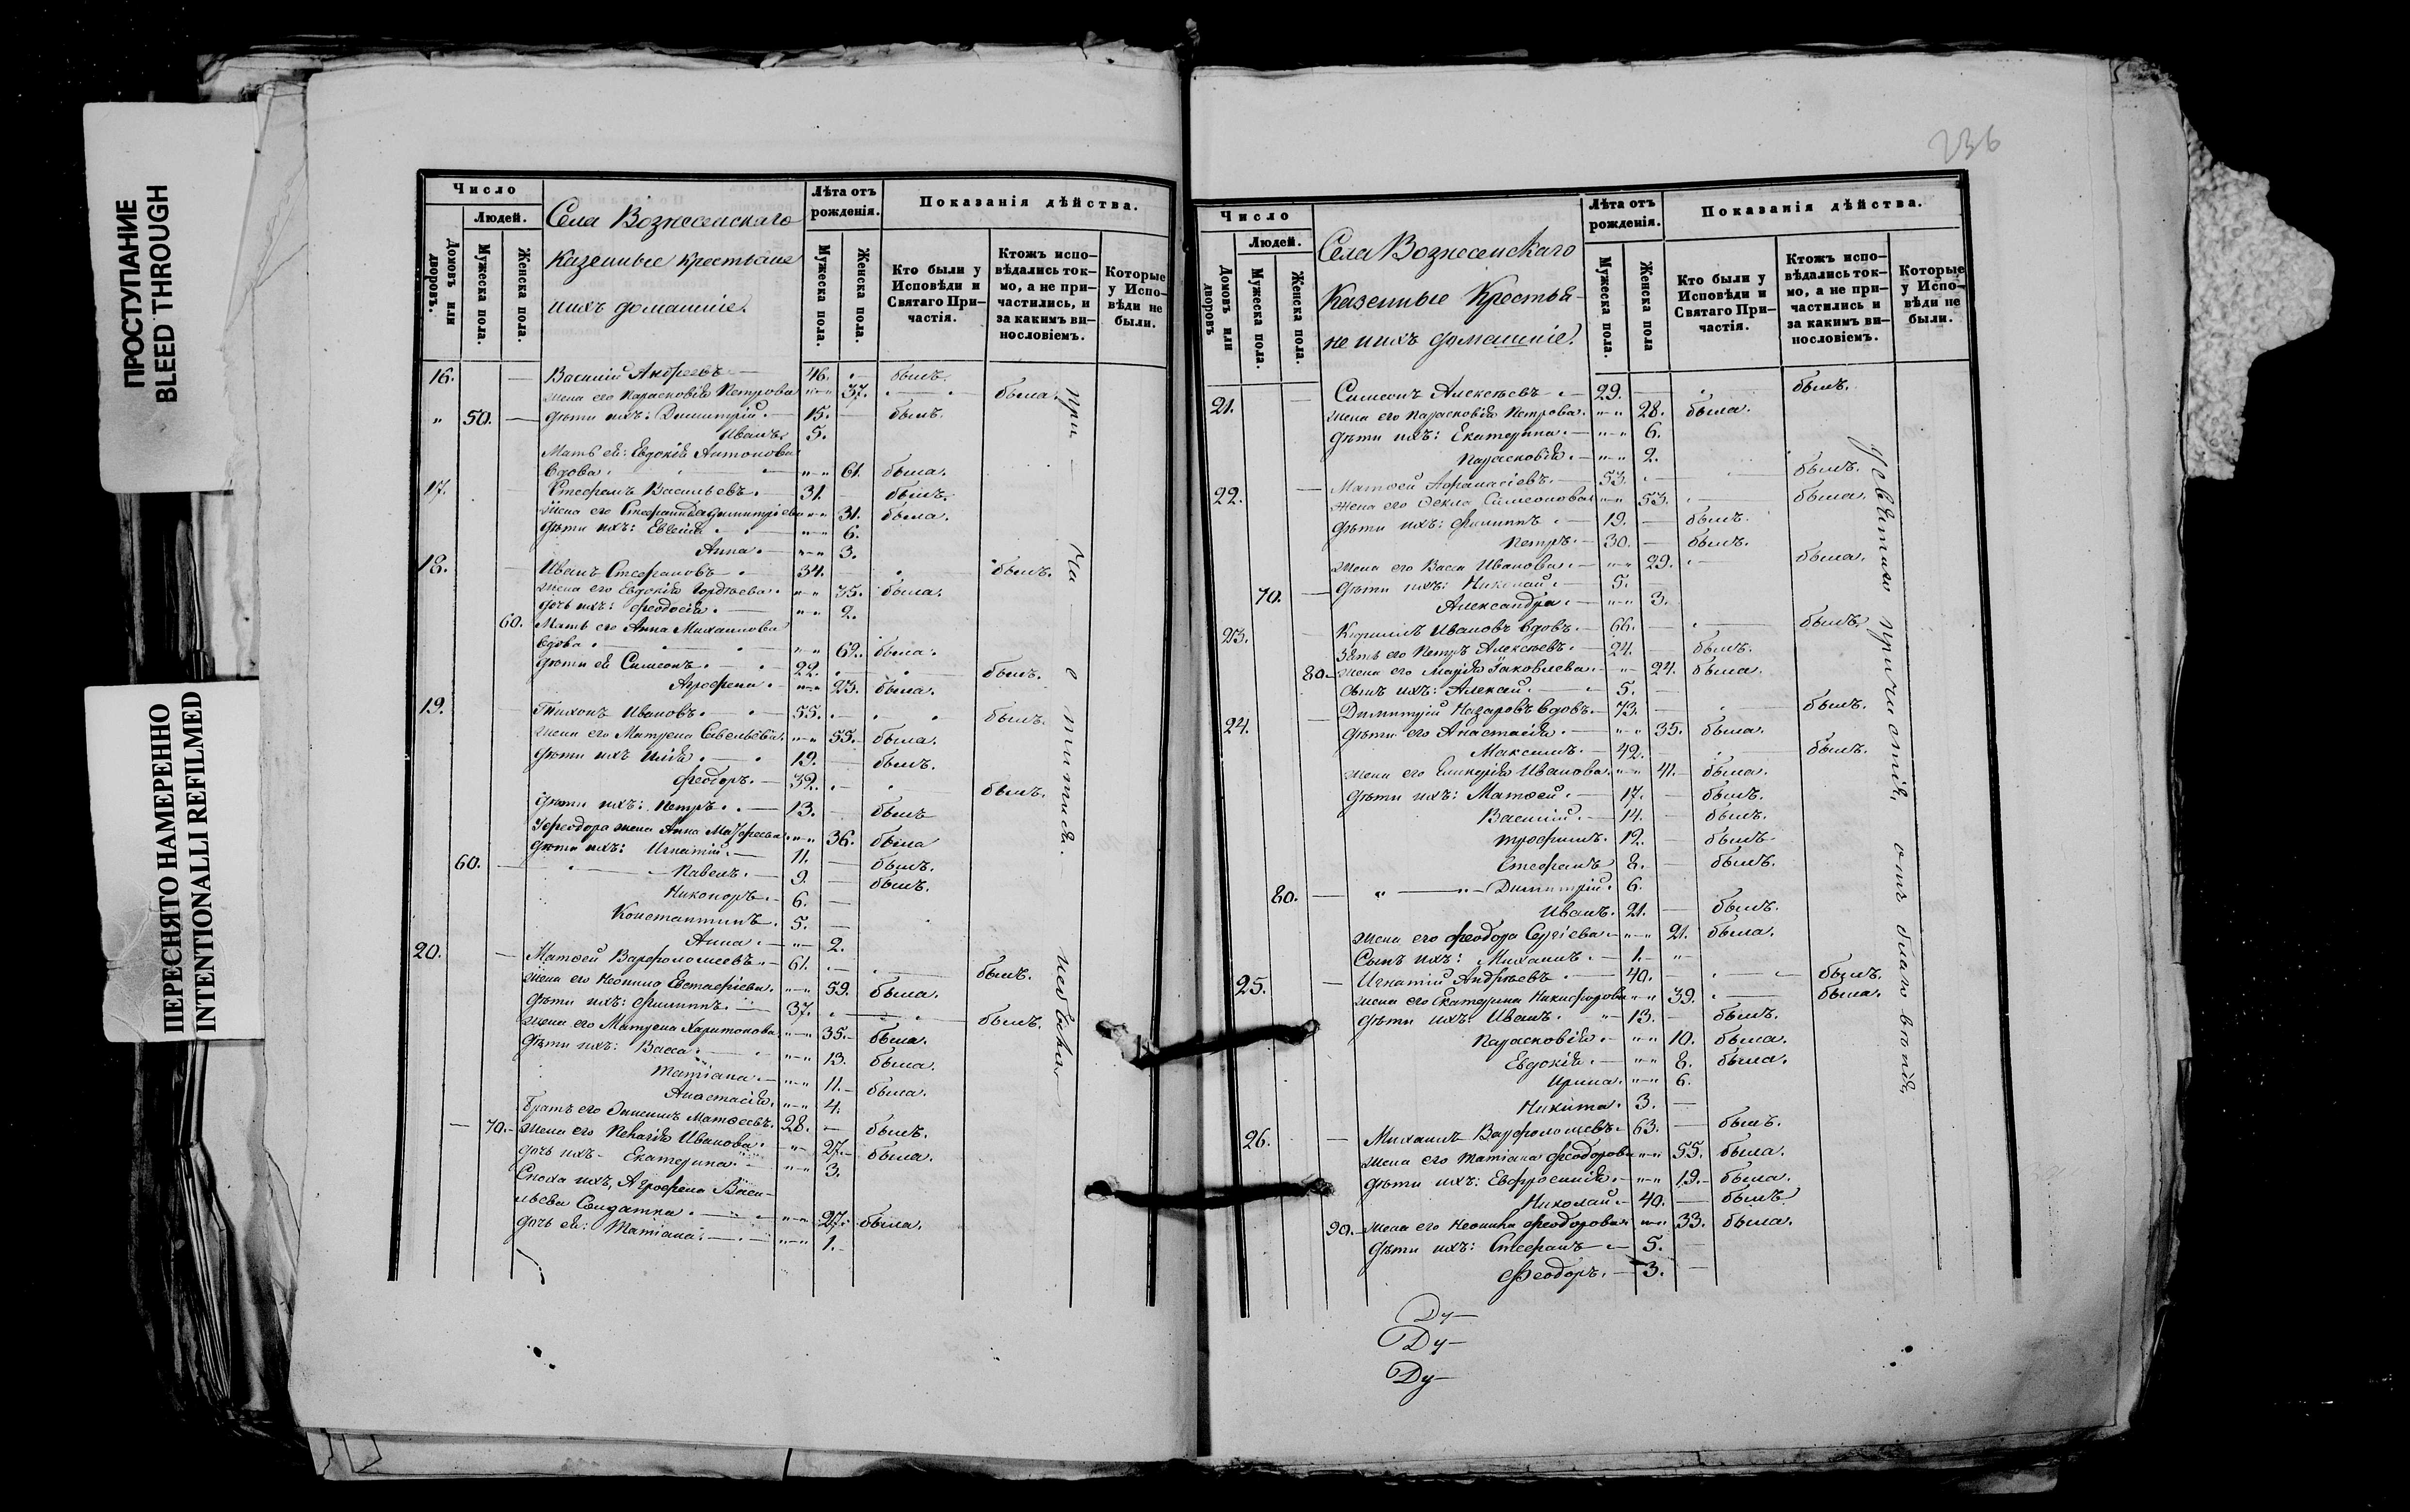 ПРОСТУПАНИЕ
BLEED THROUGH
ПЕРЕСНЯТО НАМЕРЕННО
INTENTIONALLI REFILMED
Число
Людей.
Домовъ или дворовъ.
Мужеска пола.
Женска пола.
Села Вознесенскаго
казенные крестьяне
ихъ домашніе.
Лѣта отъ рожденія.
Мужеска пола.
Женска пола.
Показанія дѣйства.
Кто были у Исповѣди и Святаго При-частія.
Ктожъ испо-вѣдались ток-мо, а не при-частились, и за какимъ ви-нословіемъ.
Которые у Испо-вѣди не были.
16. — Василій Андреевъ — 46. былъ.
жена его Парасковія Петрова 37. была.
50. — дѣти ихъ: Димитрій. 15. былъ.
Иванъ. 5.
Мать ея: Евдокія Антонова
вдова. 61. была.
17. Стефанъ Васильевъ. 31. былъ.
жена его Стефанида Димитріева 31. была.
дѣти ихъ: Евгенія 6.
Анна. 3.
18. Иванъ Стефановъ 34. былъ.
жена его Евдокія Гордѣева. 35. была.
дочь ихъ: Феодосія. 2.
60. Мать его Анна Михайлова
вдова 62. была.
дѣти ея Симеонъ. 22. былъ.
Агрофена. 23. была.
19. Тихонъ Ивановъ. 55. былъ.
жена его Матрена Савельева. 55. была.
дѣти ихъ Илія. 19. былъ.
Феодоръ. 32. былъ.
дѣти ихъ: Петръ. 13. былъ
У Феодора жена Анна 36. была
дѣти ихъ: Игнатій. 11. былъ.
60. — Павелъ. 9. былъ.
Никоноръ. 6.
Константинъ. 5.
Анна. 2.
20. — Матѳей Варфоломеевъ. 61. былъ.
жена его Неонила Евстафіева. 59. была.
дѣти ихъ: Филиппъ. 37. былъ.
жена его Матрена Харитонова 35. была.
дѣти ихъ: Васса. 13. была.
Татіана. 11. была.
Анастасія. 4.
Братъ его Онисимъ Матѳеевъ. 28. былъ.
70. жена его Пелагія Иванова. 27. была.
дочь ихъ Екатерина. 3.
Сноха ихъ, Агрофена Васи-
льева Солдатка. 27. была.
дочь ея: Татіана. 1.
небыло
236
Число
Людей.
Домовъ или дворовъ
Мужеска пола.
Женска пола.
Села Вознесенскаго
Казенные Крестья-
не ихъ домашніе.
Лѣта отъ рожденія.
Мужеска пола.
Женска пола
Показанія дѣйства.
Кто были у Исповѣди и Святаго При-частія.
Ктожъ испо-вѣдались ток-мо, а не при-частились и за какимъ ви-нословіемъ.
Которые у Испо-вѣди не были.
21. Симеонъ Алексѣевъ 29. былъ.
жена его Парасковія Петрова. 28. была.
дѣти ихъ: Екатерина. 6.
Парасковія. 2.
22. — Матѳей Афанасіевъ. 53. былъ.
жена его Ѳекла Симеонова 53. была.
дѣти ихъ: Филиппъ 19. былъ.
Петръ. 30. былъ.
жена его Васса Иванова. 29. была.
70. — дѣти ихъ: Николай. 5.
Александра. 3.
23. Кириллъ Ивановъ вдовъ. 66. былъ.
Зять его Петръ Алексѣевъ. 24. былъ.
80. жена его Марія Іаковлева. 24. была.
сынъ ихъ: Алексей. 5.
24. — Димитрій Назаровъ вдовъ. 73. былъ.
дѣти его Анастасія. 35. была.
Максимъ. 42. былъ.
жена его Гликерія Иванова. 41. была.
дѣти ихъ: Матѳей. 17. былъ.
Василій. 14. былъ.
Трофимъ. 12. былъ
Стефанъ 8. былъ.
80. — Димитрій. 6.
Иванъ. 21. былъ.
жена его Феодора Сергіева 21. была.
Сынъ ихъ: Михаилъ. 1.
25. — Игнатій Андрѣевъ 40. былъ.
жена его Екатерина Никифорова 39. была.
дѣти ихъ: Иванъ. 13. былъ.
Парасковія. 10. была.
Евдокія. 8. была.
Ирина. 6.
Никита. 3.
26. — Михаилъ Варфоломеевъ. 63. былъ.
жена его Татіана Феодорова 55. была.
дѣти ихъ: Евфросинія. 19. была.
Николай. 40. былъ
90. жена его Неонила Феодорова 33. была.
дѣти ихъ: Стефанъ 5.
Феодоръ. 3.
Ду—
Ду—
Ду—